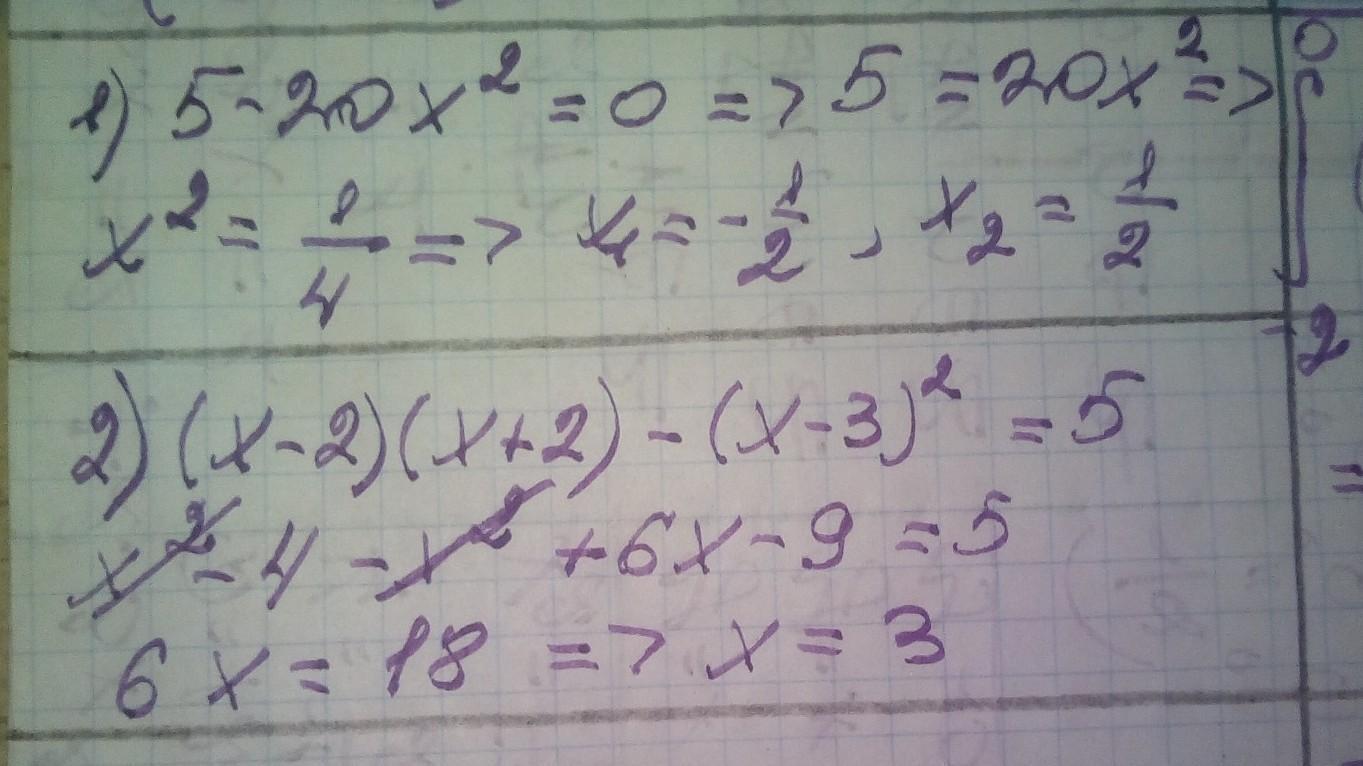 1) 5-20x² = 0 => 5 = 20x² =>
x² = 1/4 => x₁ = -1/2 , x₂ = 1/2
2) (x-2)(x+2) - (x-3)² = 5
x² - 4 - x² + 6x - 9 = 5
6x = 18 => x = 3
0
∫
-2
=